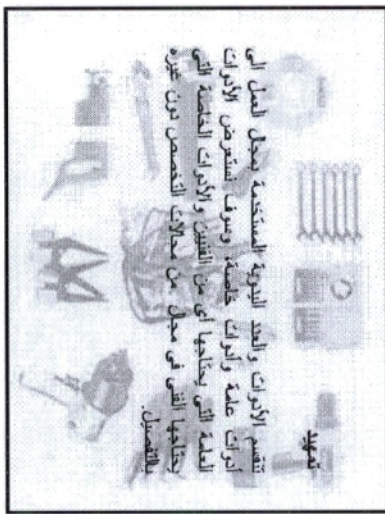 تمهيد
تنقسم الأدوات والعدد اليدوية المستخدمة بمجال العمل الى
أدوات عامة وأدوات خاصة، وسوف نستعرض الأدوات
العامة التي يحتاجها أى من الفنيين والأدوات الخاصة التى
يحتاجها الفنى فى مجال من مجالات التخصص دون غيره
بالتفصيل.